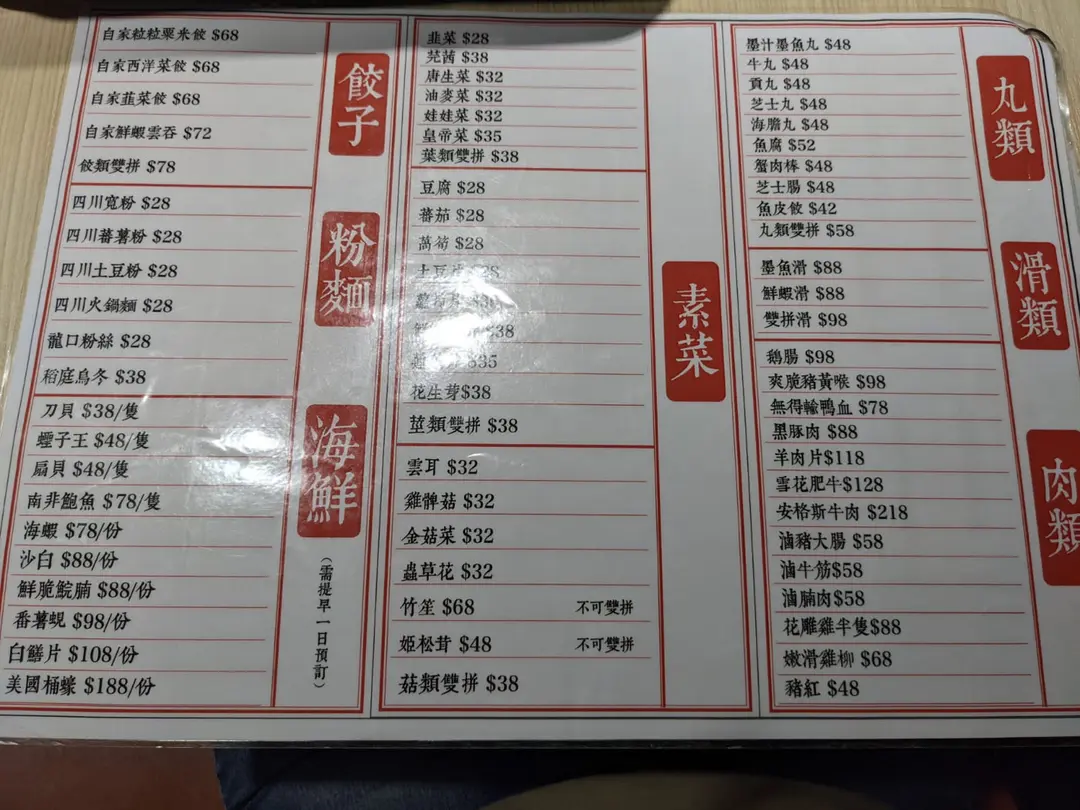 餃子
自家粒粒粟米餃 $68
自家西洋菜餃 $68
自家韮菜餃 $68
自家鮮蝦雲吞 $72
餃類雙拼 $78
粉麵
四川寬粉 $28
四川蕃薯粉 $28
四川土豆粉 $28
四川火鍋麵 $28
龍口粉絲 $28
稻庭烏冬 $38
海鮮
(需提早一日預訂)
刀貝 $38/隻
蟶子王 $48/隻
扇貝 $48/隻
南非鮑魚 $78/隻
海蝦 $78/份
沙白 $88/份
鮮脆鯇腩 $88/份
番薯蜆 $98/份
白鱔片 $108/份
美國桶蠔 $188/份
素菜
韭菜 $28
芫茜 $38
唐生菜 $32
油麥菜 $32
娃娃菜 $32
皇帝菜 $35
葉類雙拼 $38
豆腐 $28
蕃茄 $28
萵筍 $28
土豆片 $28
$38
$35
花生芽$38
莖類雙拼 $38
雲耳 $32
雞髀菇 $32
金菇菜 $32
蟲草花 $32
竹笙 $68 不可雙拼
姬松茸 $48 不可雙拼
菇類雙拼 $38
丸類
墨汁墨魚丸 $48
牛丸 $48
貢丸 $48
芝士丸 $48
海膽丸 $48
魚腐 $52
蟹肉棒 $48
芝士腸 $48
魚皮餃 $42
丸類雙拼 $58
滑類
墨魚滑 $88
鮮蝦滑 $88
雙拼滑 $98
肉類
鵝腸 $98
爽脆豬黃喉 $98
無得輸鴨血 $78
黑豚肉 $88
羊肉片$118
雪花肥牛$128
安格斯牛肉 $218
滷豬大腸 $58
滷牛筋$58
滷腩肉$58
花雕雞半隻$88
嫩滑雞柳 $68
豬紅 $48